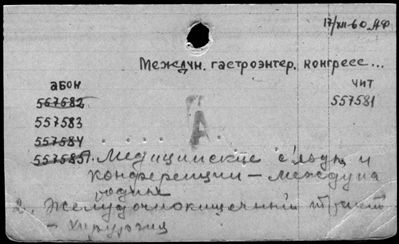 17/XII-60
Междун. гастроэнтер. конгресс...
абон чит
557582 557581
557583
557584
А
557585
1. Медицинские съезды и
конференции — междуна
родные
2. Желудочнокишечный тракт
— хирургия